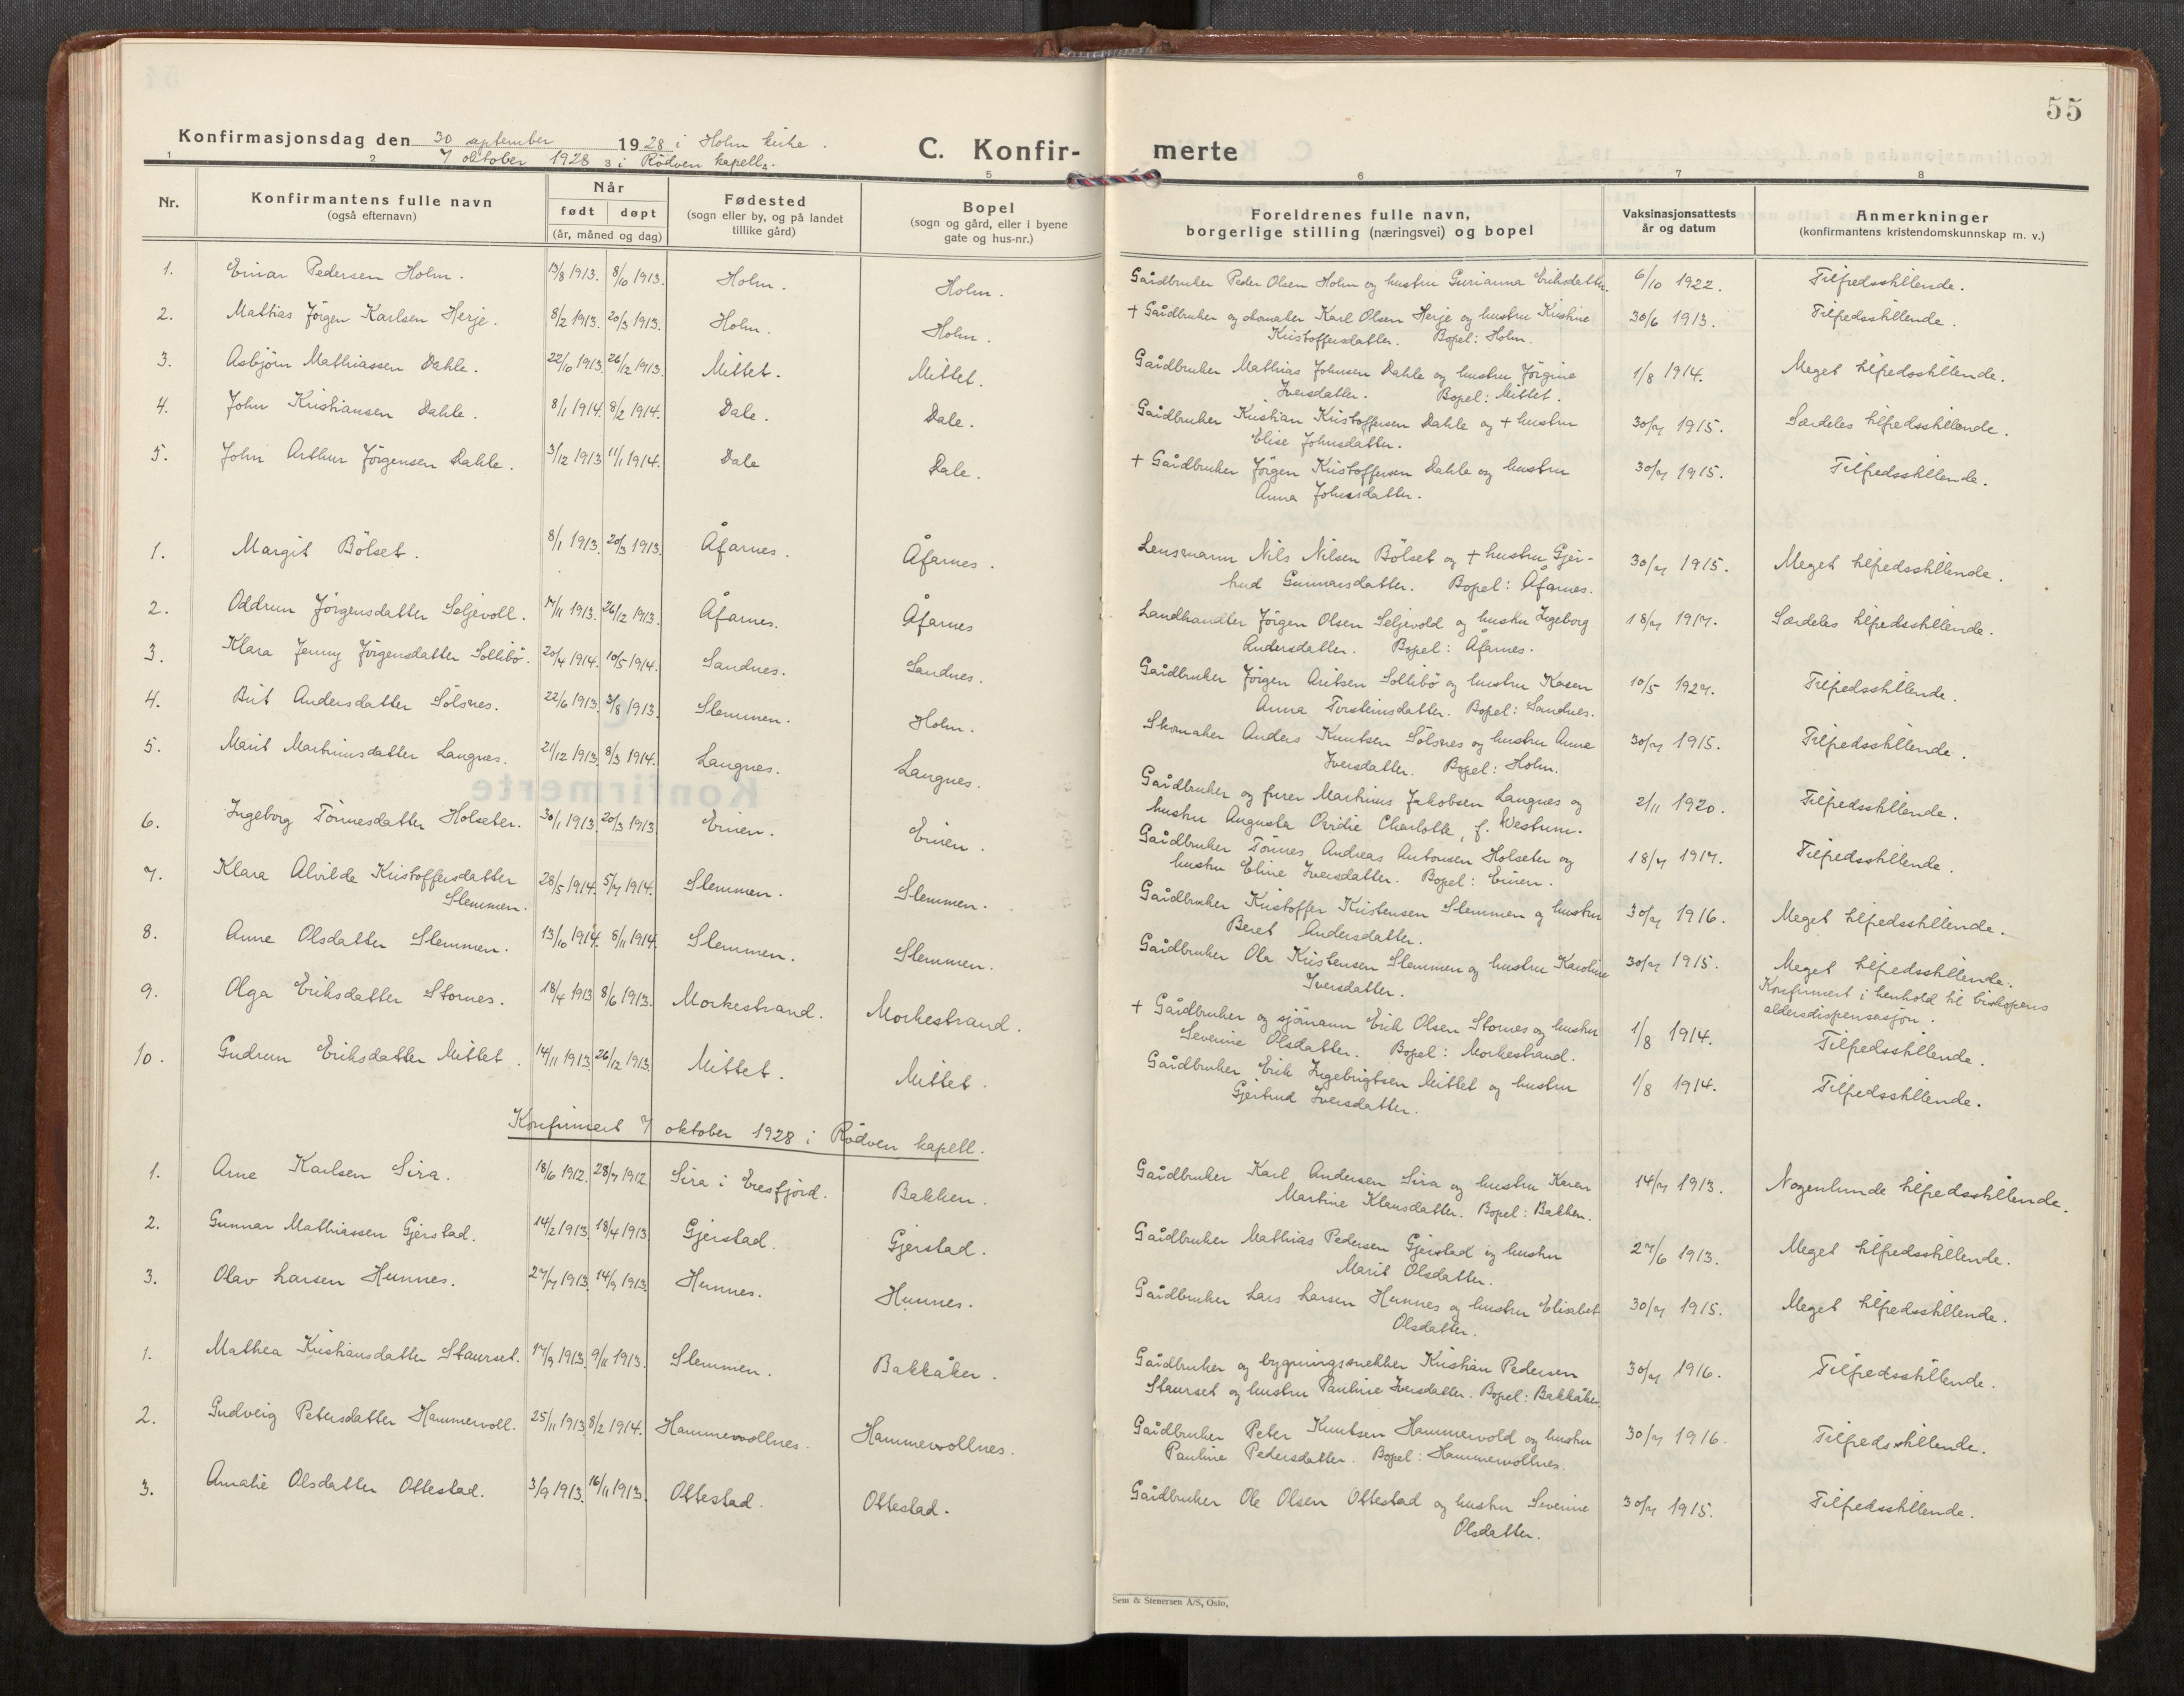 55
Konfirmasjonsdag den 30 september 1928 i Holm kirke.
7 oktober 1928 i Rödven kapell.
C. Konfir- merte
1 2 3 4 5 6 7 8
Nr.
Konfirmantens fulle navn
(også efternavn)
Når
født døpt
(år, måned og dag)
Fødested
(sogn eller by, og på landet
tillike gård)
Bopel
(sogn og gård, eller i byene
gate og hus-nr.)
Foreldrenes fulle navn,
borgerlige stilling (næringsvei) og bopel
Vaksinasjonsattests
år og datum
Anmerkninger
(konfirmantens kristendomskunnskap m. v.)
1. Einar Pedersen Holm. 13/8 1913. 8/10 1913. Holm. Holm. Gårdbruker Peder Olsen Holm og hustru Gurianna Eriksdatter. 6/10 1922. Tilfredsstillende.
2. Mathias Jörgen Karlsen Herje. 8/2 1913. 20/3 1913. Holm. Holm. + Gårdbruker og skomaker Karl Olsen Herje og hustru Kristine 30/6 1913. Tilfredsstillende.
Kristoffersdatter. Bopel: Holm.
3. Asbjörn Mathiassen Dahle. 22/10 1913. 26/12 1913. Mittet. Mittet. Gårdbruker Mathias Johnsen Dahle og hustru Jörgine 1/8 1914. Meget tilfredsstillende.
Iversdatter. Bopel: Mittet.
4. John Kristiansen Dahle. 8/1 1914. 8/2 1914. Dale. Dale. Gårdbruker Kristian Kristoffersen Dahle og + hustru 30/7 1915. Særdeles tilfredsstillende.
Elise Johnsdatter.
5. John Arthur Jörgensen Dahle. 3/12 1913 11/1 1914. Dale Dale. + Gårdbruker Jörgen Kristoffersen Dahle og hustru 30/7 1915. Tilfredsstillende.
Anna Johnsdatter.
1. Margit Bölset. 8/1 1913. 20/3 1913. Åfarnes. Åfarnes. Lensmann Nils Nilsen Bölset og + hustru Gjer- 30/7 1915. Meget tilfredsstillende.
trud Gunnarsdatter. Bopel: Åfarnes.
2. Oddrun Jörgensdatter Seljevoll. 17/11 1913. 26/12 1913. Åfarnes. Åfarnes Landhandler Jörgen Olsen Seljevold og hustru Ingeborg 18/7 1917. Særdeles tilfredsstillende.
Andersdatter. Bopel: Åfarnes.
3. Klara Jenny Jörgensdatter Sollibö. 20/4 1914. 10/5 1914. Sandnes. Sandnes. Gårdbruker Jörgen Aritsen Sollibö og hustru Karen 10/5 1927. Tilfredsstillende.
Anna Torsteinsdatter. Bopel: Sandnes.
4. Brit Andersdatter Sölsnes. 22/6 1913. 3/8 1913. Slemmen. Holm. Skomaker Anders Knutsen Sölsnes og hustru Anne 30/7 1915. Tilfredsstillende.
Iversdatter. Bopel: Holm.
5. Marit Martinusdatter Langnes. 21/12 1913. 8/3 1914. Langnes. Langnes. Gårdbruker og furer Martinus Jakobsen Langnes og 2/11 1920. Tilfredsstillende.
hustru Augusta Ovidie Charlotte, f. Westrum.
6. Ingeborg Tönnesdatter Holseter. 30/1 1913. 20/3 1913. Eiren. Eiren. Gårdbruker Tönnes Andreas Antonsen Holseter og 18/7 1917. Tilfredsstillende.
hustru Eline Iversdatter. Bopel: Eiren.
7. Klara Alvilde Kristoffersdatter 28/5 1914. 5/7 1914. Slemmen. Slemmen. Gårdbruker Kristoffer Kristensen Slemmen og hustru 30/7 1916. Meget tilfredsstillende.
Slemmen. Beret Andersdatter.
8. Anne Olsdatter Slemmen. 13/10 1914. 8/11 1914. Slemmen. Slemmen. Gårdbruker Ola Kristensen Slemmen og hustru Karoline 30/7 1915. Meget tilfredsstillende.
Iversdatter. Konfirmert i henhold til biskopens
aldersdispensasjon.
9. Olga Eriksdatter Stornes. 18/4 1913 8/6 1913. Morkestrand. Morkestrand. + Gårdbruker og sjömann Erik Olsen Stornes og hustru 1/8 1914. Tilfredsstillende.
Severine Olsdatter. Bopel: Morkestrand.
10. Gudrun Eriksdatter Mittet. 14/11 1913 26/12 1913. Mittet. Mittet. Gårdbruker Erik Ingebrigtsen Mittet og hustru 1/8 1914. Tilfredsstillende.
Gjertrud Iversdatter.
Konfirmert 7 oktober 1928 i Rödven kapell.
1. Arne Karlsen Sira. 18/6 1912. 28/7 1912. Sira i Eresfjord. Bakken. Gårdbruker Karl Andersen Sira og hustru Karen 14/7 1913. Nogenlunde tilfredsstillende.
Martine Klausdatter. Bopel: Bakken.
2. Gunnar Mathiassen Gjerstad. 14/2 1913. 18/4 1913 Gjerstad. Gjerstad. Gårdbruker Mathias Pedersen Gjerstad og hustru 27/6 1913. Meget tilfredsstillende.
Marit Olsdatter.
3. Olav Larsen Hunnes. 27/7 1913. 14/9 1913. Hunnes. Hunnes. Gårdbruker Lars Larsen Hunnes og hustru Elisabet 30/7 1915. Meget tilfredsstillende.
Olsdatter.
1. Mathea Kristiansdatter Staurset. 17/9 1913. 9/11 1913. Slemmen. Bakkåker. Gårdbruker og bygningssnekker Kristian Pedersen 30/7 1916. Tilfredsstillende.
Staurset og hustru Pauline Iversdatter. Bopel: Bakkåker.
2. Gudveig Petersdatter Hammervoll. 25/11 1913. 8/2 1914. Hammervollnes. Hammervollnes. Gårdbruker Peter Knutsen Hammervold og hustru 30/7 1916. Tilfredsstillende.
Pauline Pedersdatter. Bopel: Hammervollnes.
3. Amalie Olsdatter Ottestad. 3/9 1913. 16/11 1913. Ottestad. Ottestad. Gårdbruker Ole Olsen Ottestad og hustru Severine 30/7 1915. Tilfredsstillende.
Olsdatter.
Sem & Stenersen A/S, Oslo.